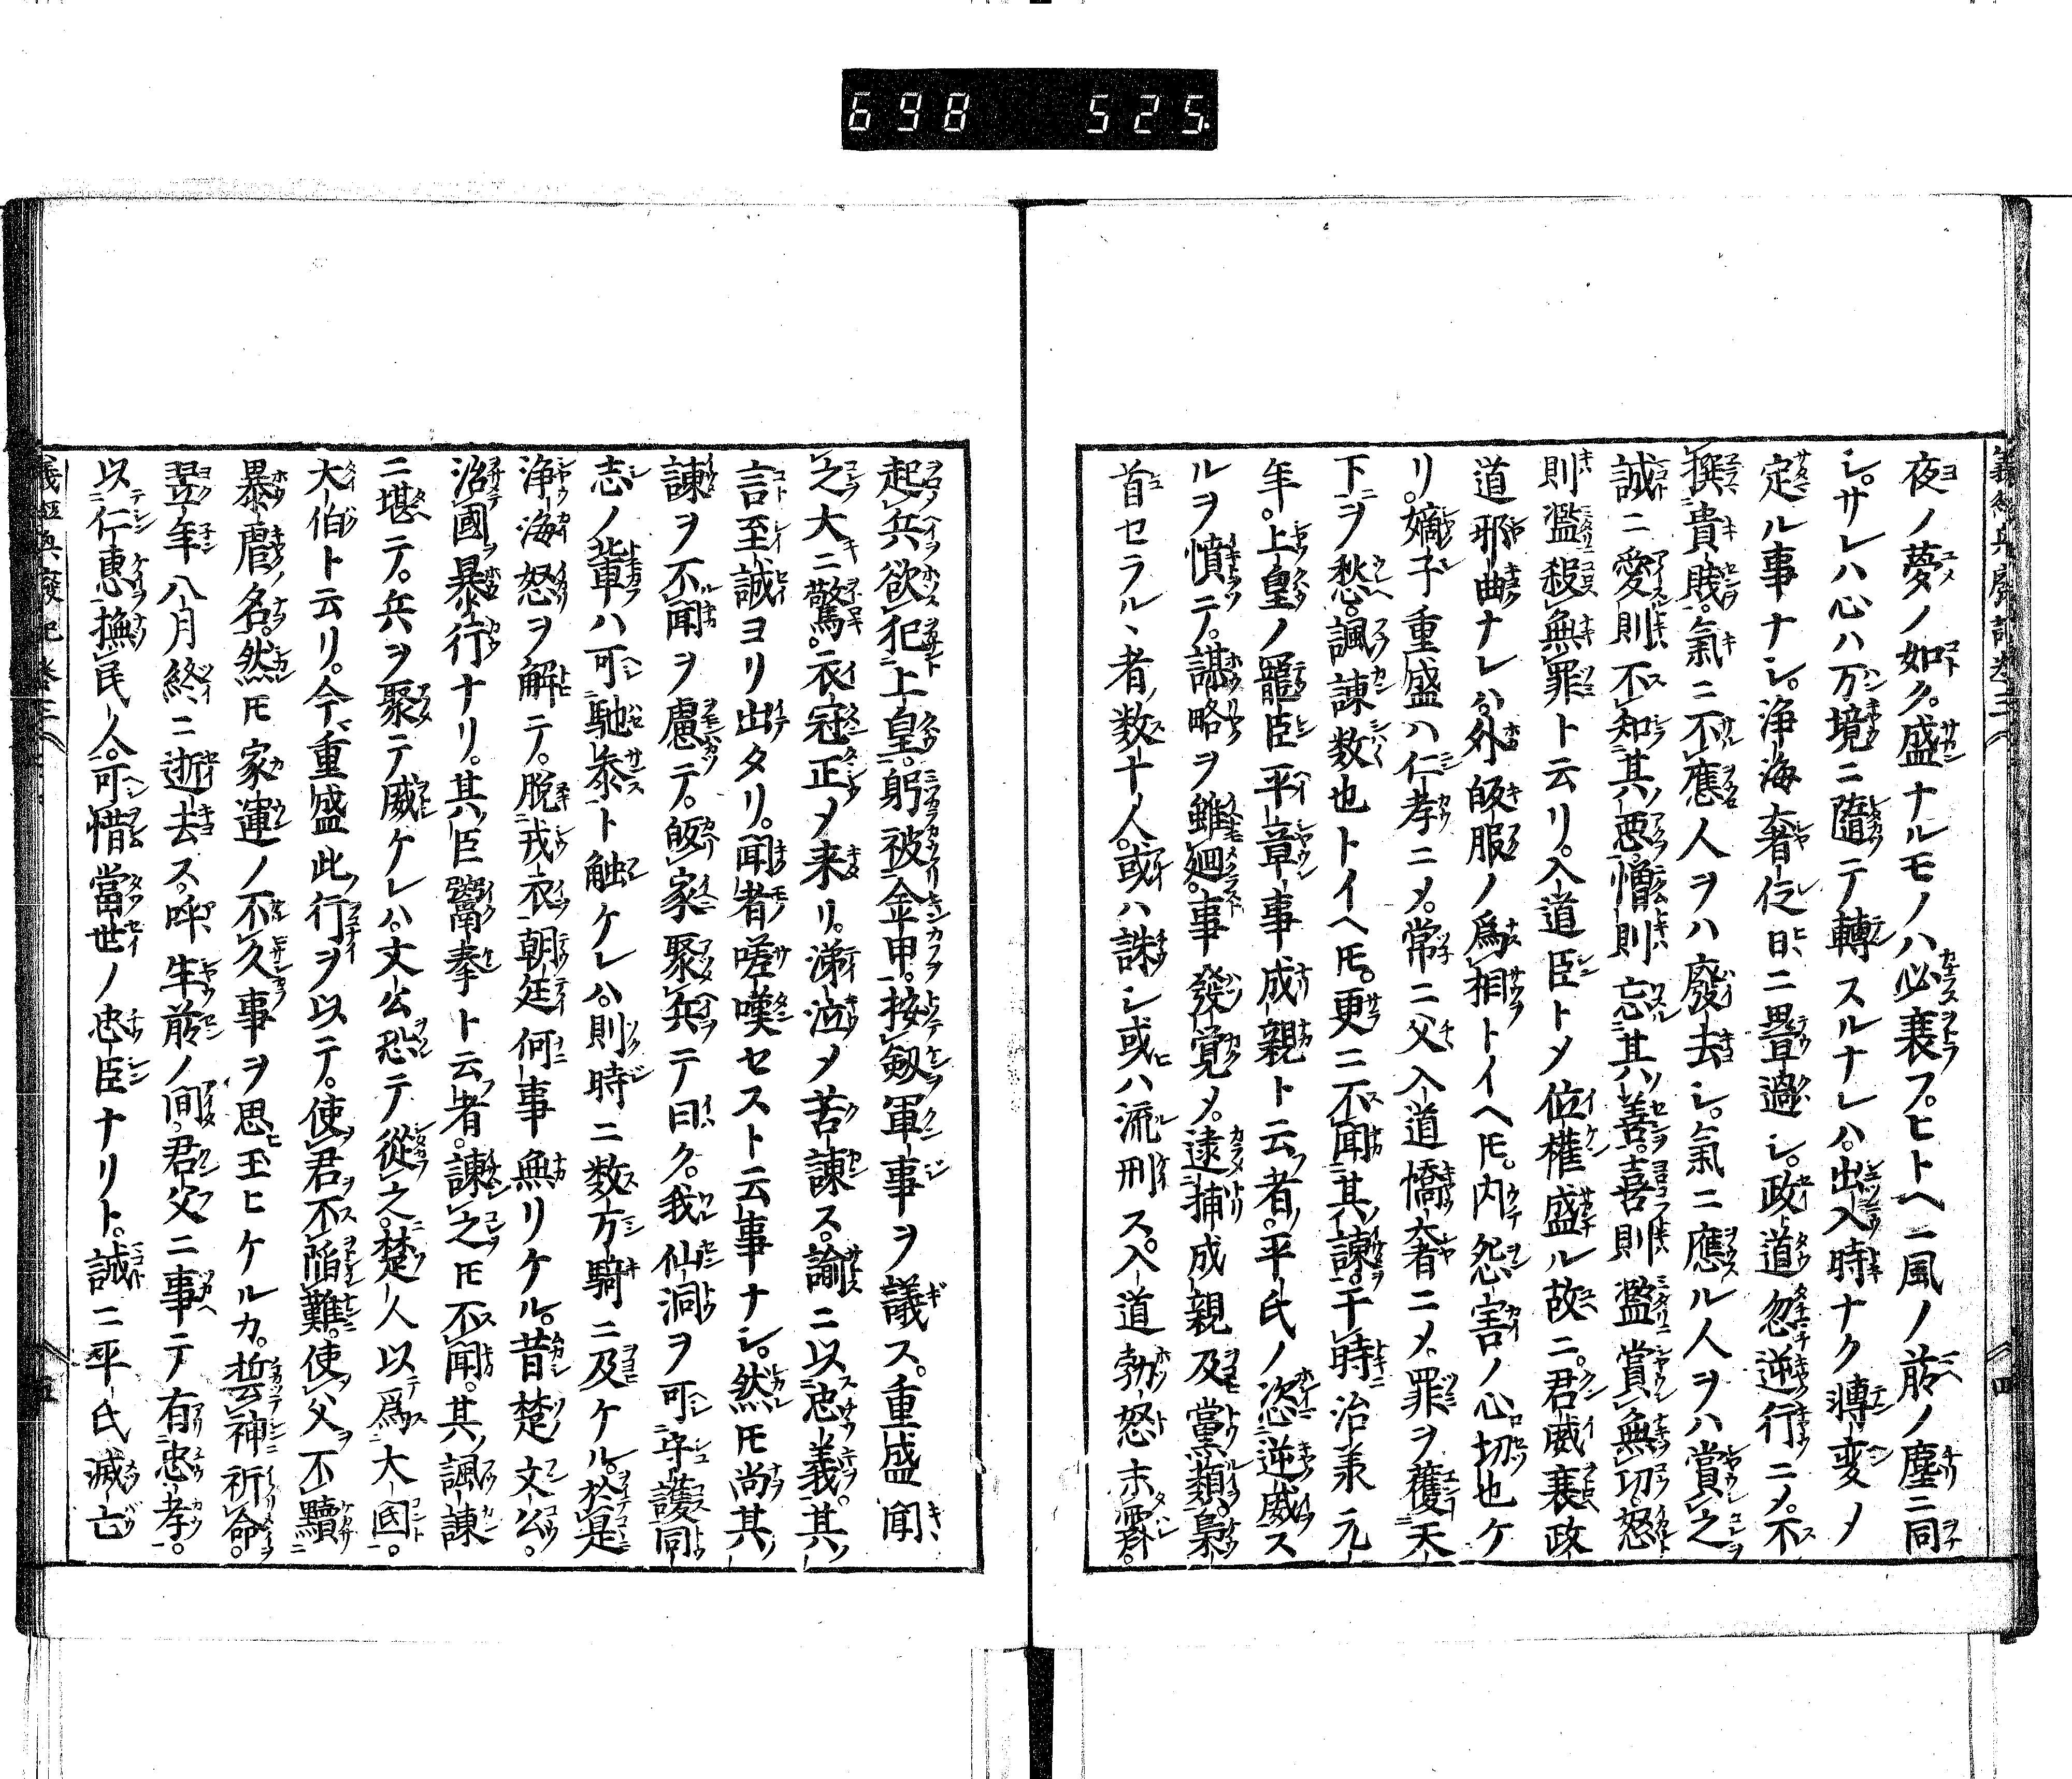 698 525
義經興廢記卷三
四
夜ノ夢ノ如ク。盛ナルモノハ必衰フ。ヒトヘニ風ノ前ノ塵ニ同
シ。サレハ心ハ万境ニ隨テ轉スルナレハ。出入時ナク轉変メ
定ル事ナシ。浄海奢侈日ニ畳過シ。政道忽逆行ニメ。不
撰貴賤。氣ニ不應人ヲハ廢去シ。氣ニ應ル人ヲハ賞之
誠ニ愛則不知其悪。憎則忘其善。喜則濫賞無功。怒
則濫殺無罪ト云リ。入道臣トメ位權盛ル故ニ。君威衰政
道邪曲ナレハ。外皈服ノ爲相トイヘ𪜈。内怨害ノ心切也ケ
リ。嫡子重盛ハ仁孝ニメ。常ニ父入道憍奢ニメ。罪ヲ獲天
下ヲ愁。諷諌数也トイヘ𪜈。更ニ不聞其諌。于時治承元
年。上皇ノ寵臣平章事成親ト云者。平氏ノ恣逆威ス
ルヲ憤テ。謀略ヲ雖廻。事發覚メ。逮捕成親及黨類。梟
首セラルヽ者数十人。或ハ誅シ或ハ流刑ス。入道勃怒未霽。
起兵欲犯上皇。躬被金甲。按劔軍事ヲ議ス。重盛聞
之大ニ驚。衣冠正メ来リ。涕泣メ苦諌ス。諭ニ以忠義。其
言至誠ヨリ出タリ。聞者嗟嘆セスト云事ナシ。然𪜈尚其
諌ヲ不聞ヲ慮テ。皈家聚兵テ曰ク。我仙洞ヲ可守護。同
志ノ輩ハ可馳参ト触ケレハ。則時ニ数万騎ニ及ケル。於是
浄海怒ヲ解テ。脱戎衣朝廷何事無リケル。昔楚文公。
治國暴行ナリ。其臣鬻拳ト云者。諌之𪜈不聞。其諷諌
ニ堪テ。兵ヲ聚テ威ケレハ。文公恐テ從之。楚人以爲大
大伯ト云リ。今重盛此行ヲ以テ。使君不陥難。使父不黷
暴虐名。然𪜈家運ノ不久事ヲ思玉ヒケルカ。誓神祈命。
翌年八月終ニ逝去ス。吁生前ノ間。君父ニ事テ有忠孝。
以仁惠撫民人。可惜當世ノ忠臣ナリト。誠ニ平氏滅亡
義經興廢記卷三
五